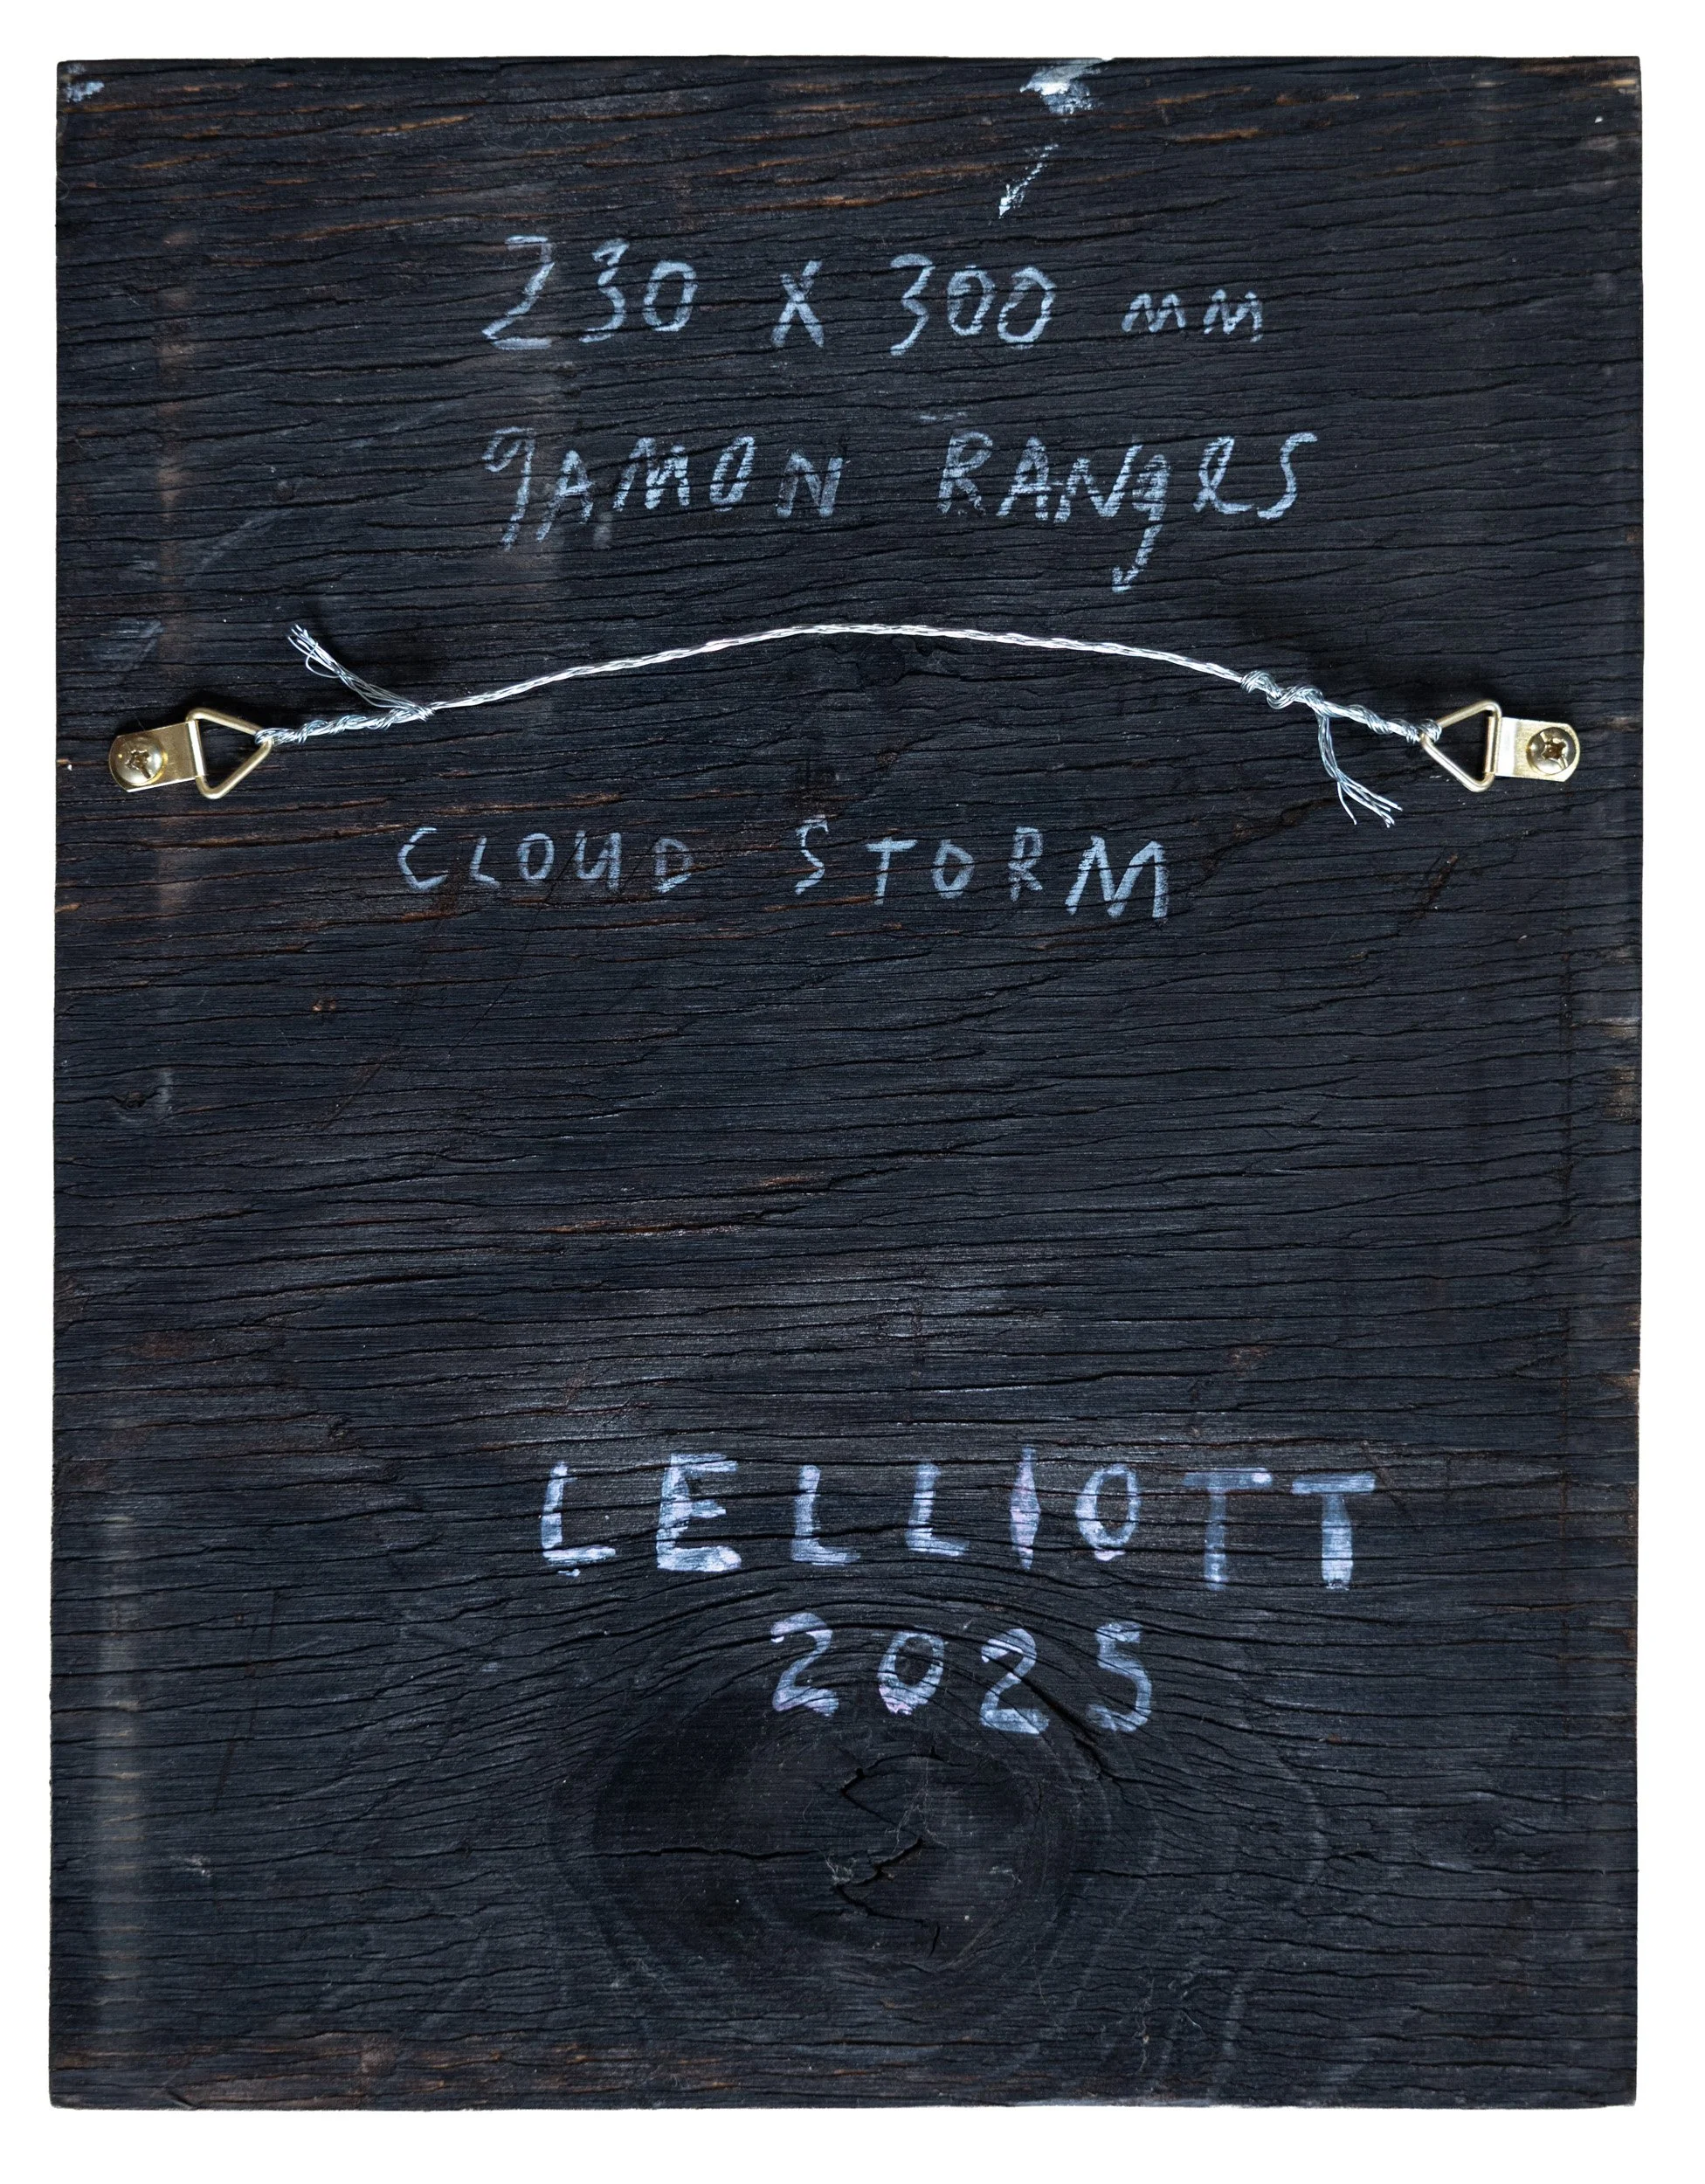 230 x 300 mm
gAMON RANgeS
CLOUD STORM
LELLIOTT
2025